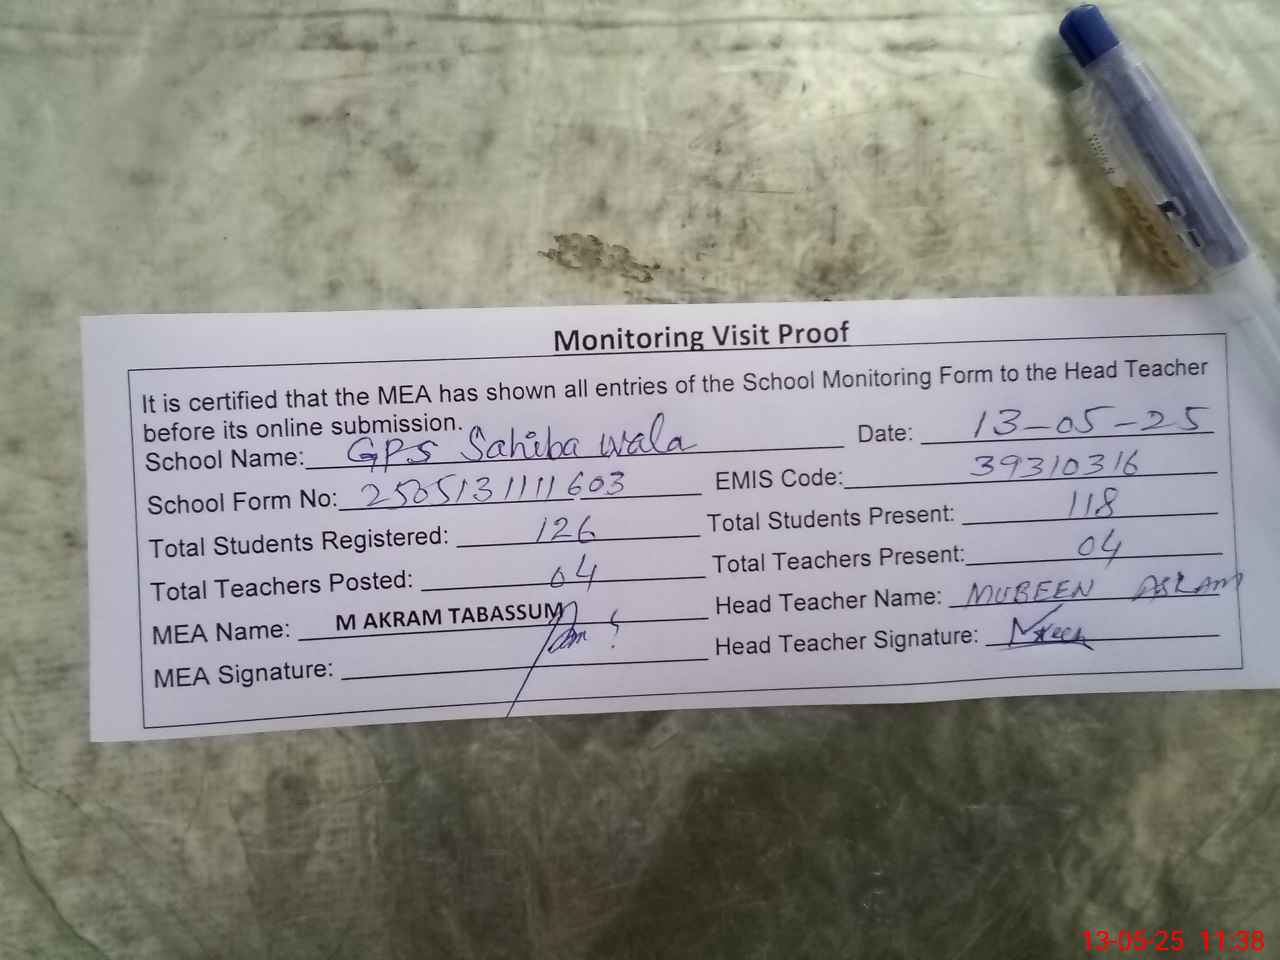 Monitoring Visit Proof
It is certified that the MEA has shown all entries of the School Monitoring Form to the Head Teacher
before its online submission.
School Name: GPS Sahiba wala Date: 13-05-25
School Form No: 2505131111603 EMIS Code: 39310316
Total Students Registered: 126 Total Students Present: 118
Total Teachers Posted: 04 Total Teachers Present: 04
MEA Name: M AKRAM TABASSUM Head Teacher Name: MUBEEN ASLAM
MEA Signature: Head Teacher Signature:
13-05-25 11:38